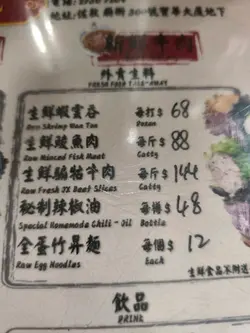 地址:佐敦
新鮮牛肉
外賣生料
FRESH FOOD TAKE-AWAY
生鮮蝦雲吞 每打$ 68
Raw Shrimp Wan Ton Dozen
生鮮鯪魚肉 每斤$ 88
Raw Minced Fish Meat Catty
生鮮牛肉 每斤$ 144
Raw Fresh OX Beef Slices Catty
秘制辣椒油 每樽$ 48
Special Homemade Chili - Oil Bottle
全蛋竹昇麵 每個$ 12
Raw Egg Noodles Each
生鮮食品
飲品
DRINK